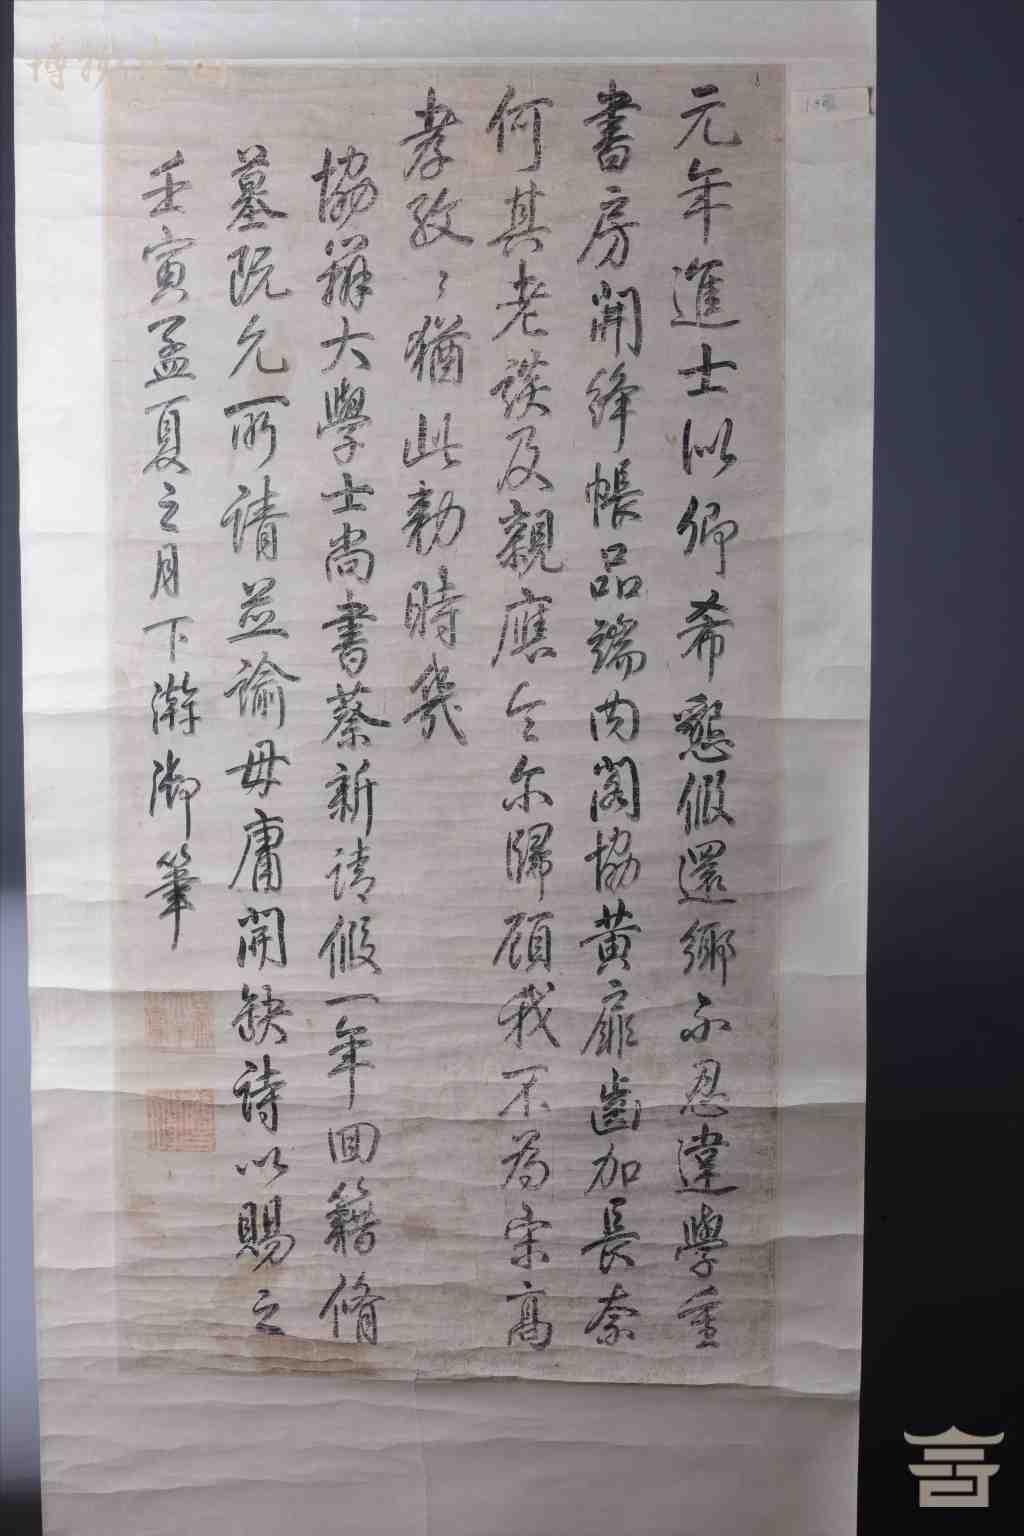 元年進士似卿希懇假還鄉不忍違學重
書房開絳帳品端內閣協黃扉齒加長奈
何其老談及親應令尔歸顧我不為宋高
孝孜〻猶此勅時幾
協辦大學士尚書蔡新請假一年回籍脩
墓既允所請並諭毋庸開缺詩以賜之
壬寅孟夏之月下澣御筆